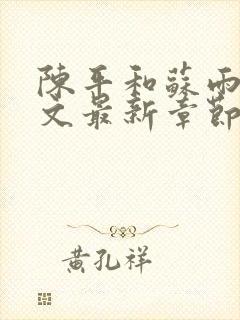 陳平和蘇雨
文最新章節
黃孔祥